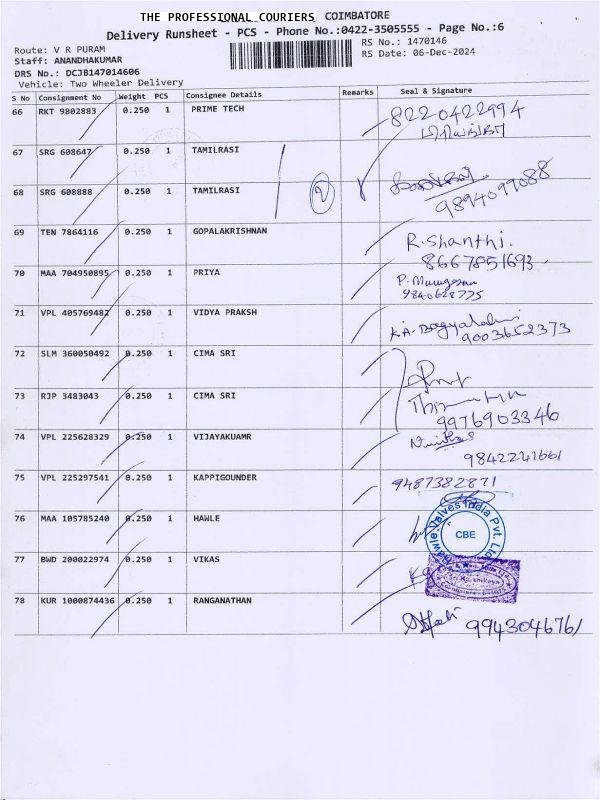 THE PROFESSIONAL COURIERS COIMBATORE
Delivery Runsheet - PCS - Phone No.:0422-3505555 - Page No.:6
Route: V R PURAM
Staff: ANANDHAKUMAR
DRS No.: DCJB147014606
Vehicle: Two Wheeler Delivery
RS No.: 1470146
RS Date: 06-Dec-2024
S No Consignment No Weight PCS Consignee Details Remarks Seal & Signature
66 RKT 9802883 0.250 1 PRIME TECH 8220422994
67 SRG 608647 0.250 1 TAMILRASI
68 SRG 608888 0.250 1 TAMILRASI 2 9894099088
69 TEN 7864116 0.250 1 GOPALAKRISHNAN R.Shanthi.
8667851693
70 MAA 704950895 0.250 1 PRIYA P. Murugesan
9840628775
71 VPL 405769482 0.250 1 VIDYA PRAKSH
9003652373
72 SLM 360050492 0.250 1 CIMA SRI
73 RJP 3483043 0.250 1 CIMA SRI
9976903346
74 VPL 225628329 0.250 1 VIJAYAKUAMR
9842241661
75 VPL 225297541 0.250 1 KAPPIGOUNDER 9487382871
76 MAA 105785240 0.250 1 HAWLE Hawle Valves India Pvt. Ltd. CBE
77 BWD 200022974 0.250 1 VIKAS
78 KUR 1000874436 0.250 1 RANGANATHAN 9943046761